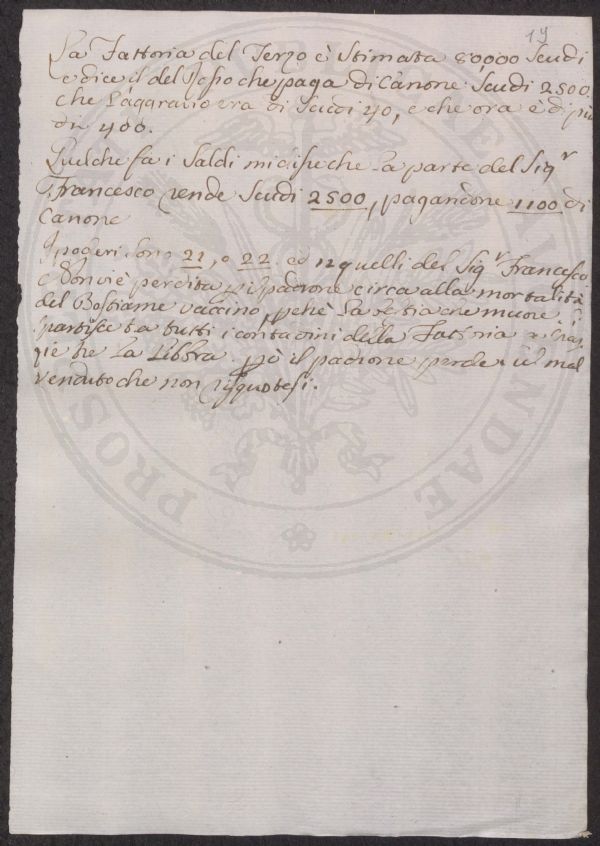 19
La Fattoria del Terzo è Stimata 80000 Scudi
e dice il del che paga di Canone Scudi 2500
che l'aggravio era di Scudi 40, e che ora è di più
di 400.
Quel che fa i Saldi mi disse che la parte del Sigr
Francesco rende Scudi 2500, pagandone 1100 di
Canone
I poderi sono 21, o 22 ed 12 quelli del Sigr Francesco
e non vi è perdita p il padrone circa alla mortalità
del Bestiame vaccino, pchè la bestia che muore si
spartisce tra tutti i contadini della Fattoria a
gie tre la Libbra. pò il padrone perde il mal
venduto che non
PROS
NDAE